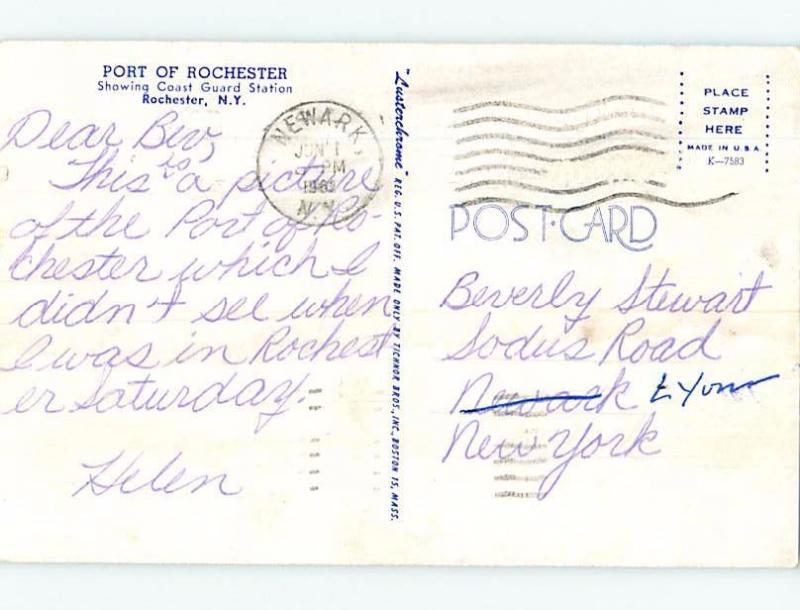 PORT OF ROCHESTER
Showing Coast Guard Station
Rochester, N.Y.
Dear Bev,
This is a picture
of the Port of Ro-
chester which I
didn't see when
I was in Rochest
er Saturday.
Helen
NEWARK,
JUN 1
PM
N.Y.
"Lusterchrome" REG. U.S. PAT. OFF. MADE ONLY BY TICHNOR BROS., INC., BOSTON 15, MASS.
PLACE
STAMP
HERE
MADE IN U.S.A
K-7583
POST-CARD
Beverly Stewart
Sodus Road
Newark Lyons
New York